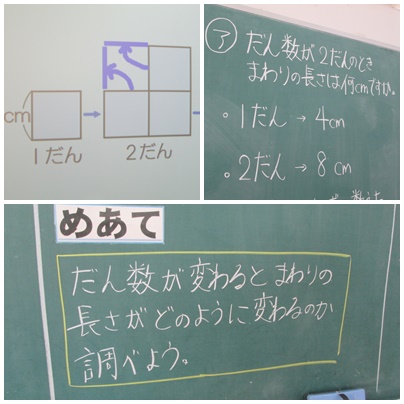 cm
1だん
2だん
ア
だん数が2だんのとき
まわりの長さは何cmですか。
。1だん→4cm
。2だん→8cm
めあて
だん数が変わるとまわりの
長さがどのように変わるのか
調べよう。